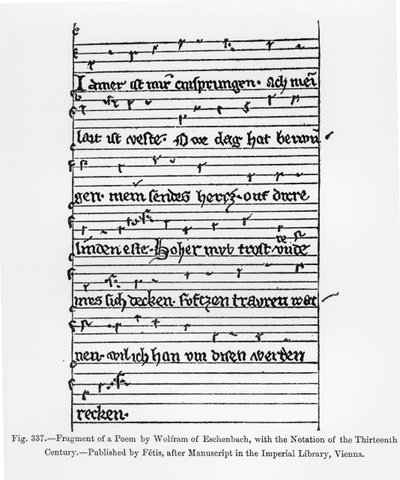 Iamer ist mir entsprungen. Ach mei
lait ist veste. O we daz hat
gen. mein sendes hertz. ouf dvrre
linden este. Hoher mvt trost vnde
mvs sich decken. svftzen travren
nen. wil ich han vm disen werden
recken.
Fig. 337.—Fragment of a Poem by Wolfram of Eschenbach, with the Notation of the Thirteenth
Century.—Published by Fétis, after Manuscript in the Imperial Library, Vienna.